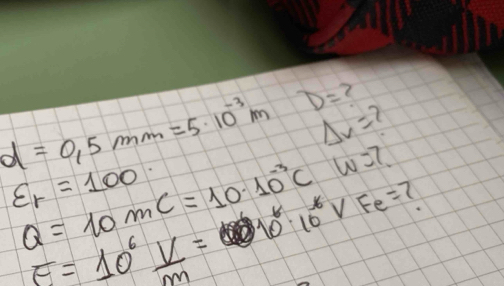 d = 0,5 mm = 5 · 10⁻³ m D = ?
εr = 100 . Δv = ?
Q = 10 mC = 10 · 10⁻³ C W = ?
E = 10⁶ V/m = 10⁶ · 10⁶ V Fe = ?